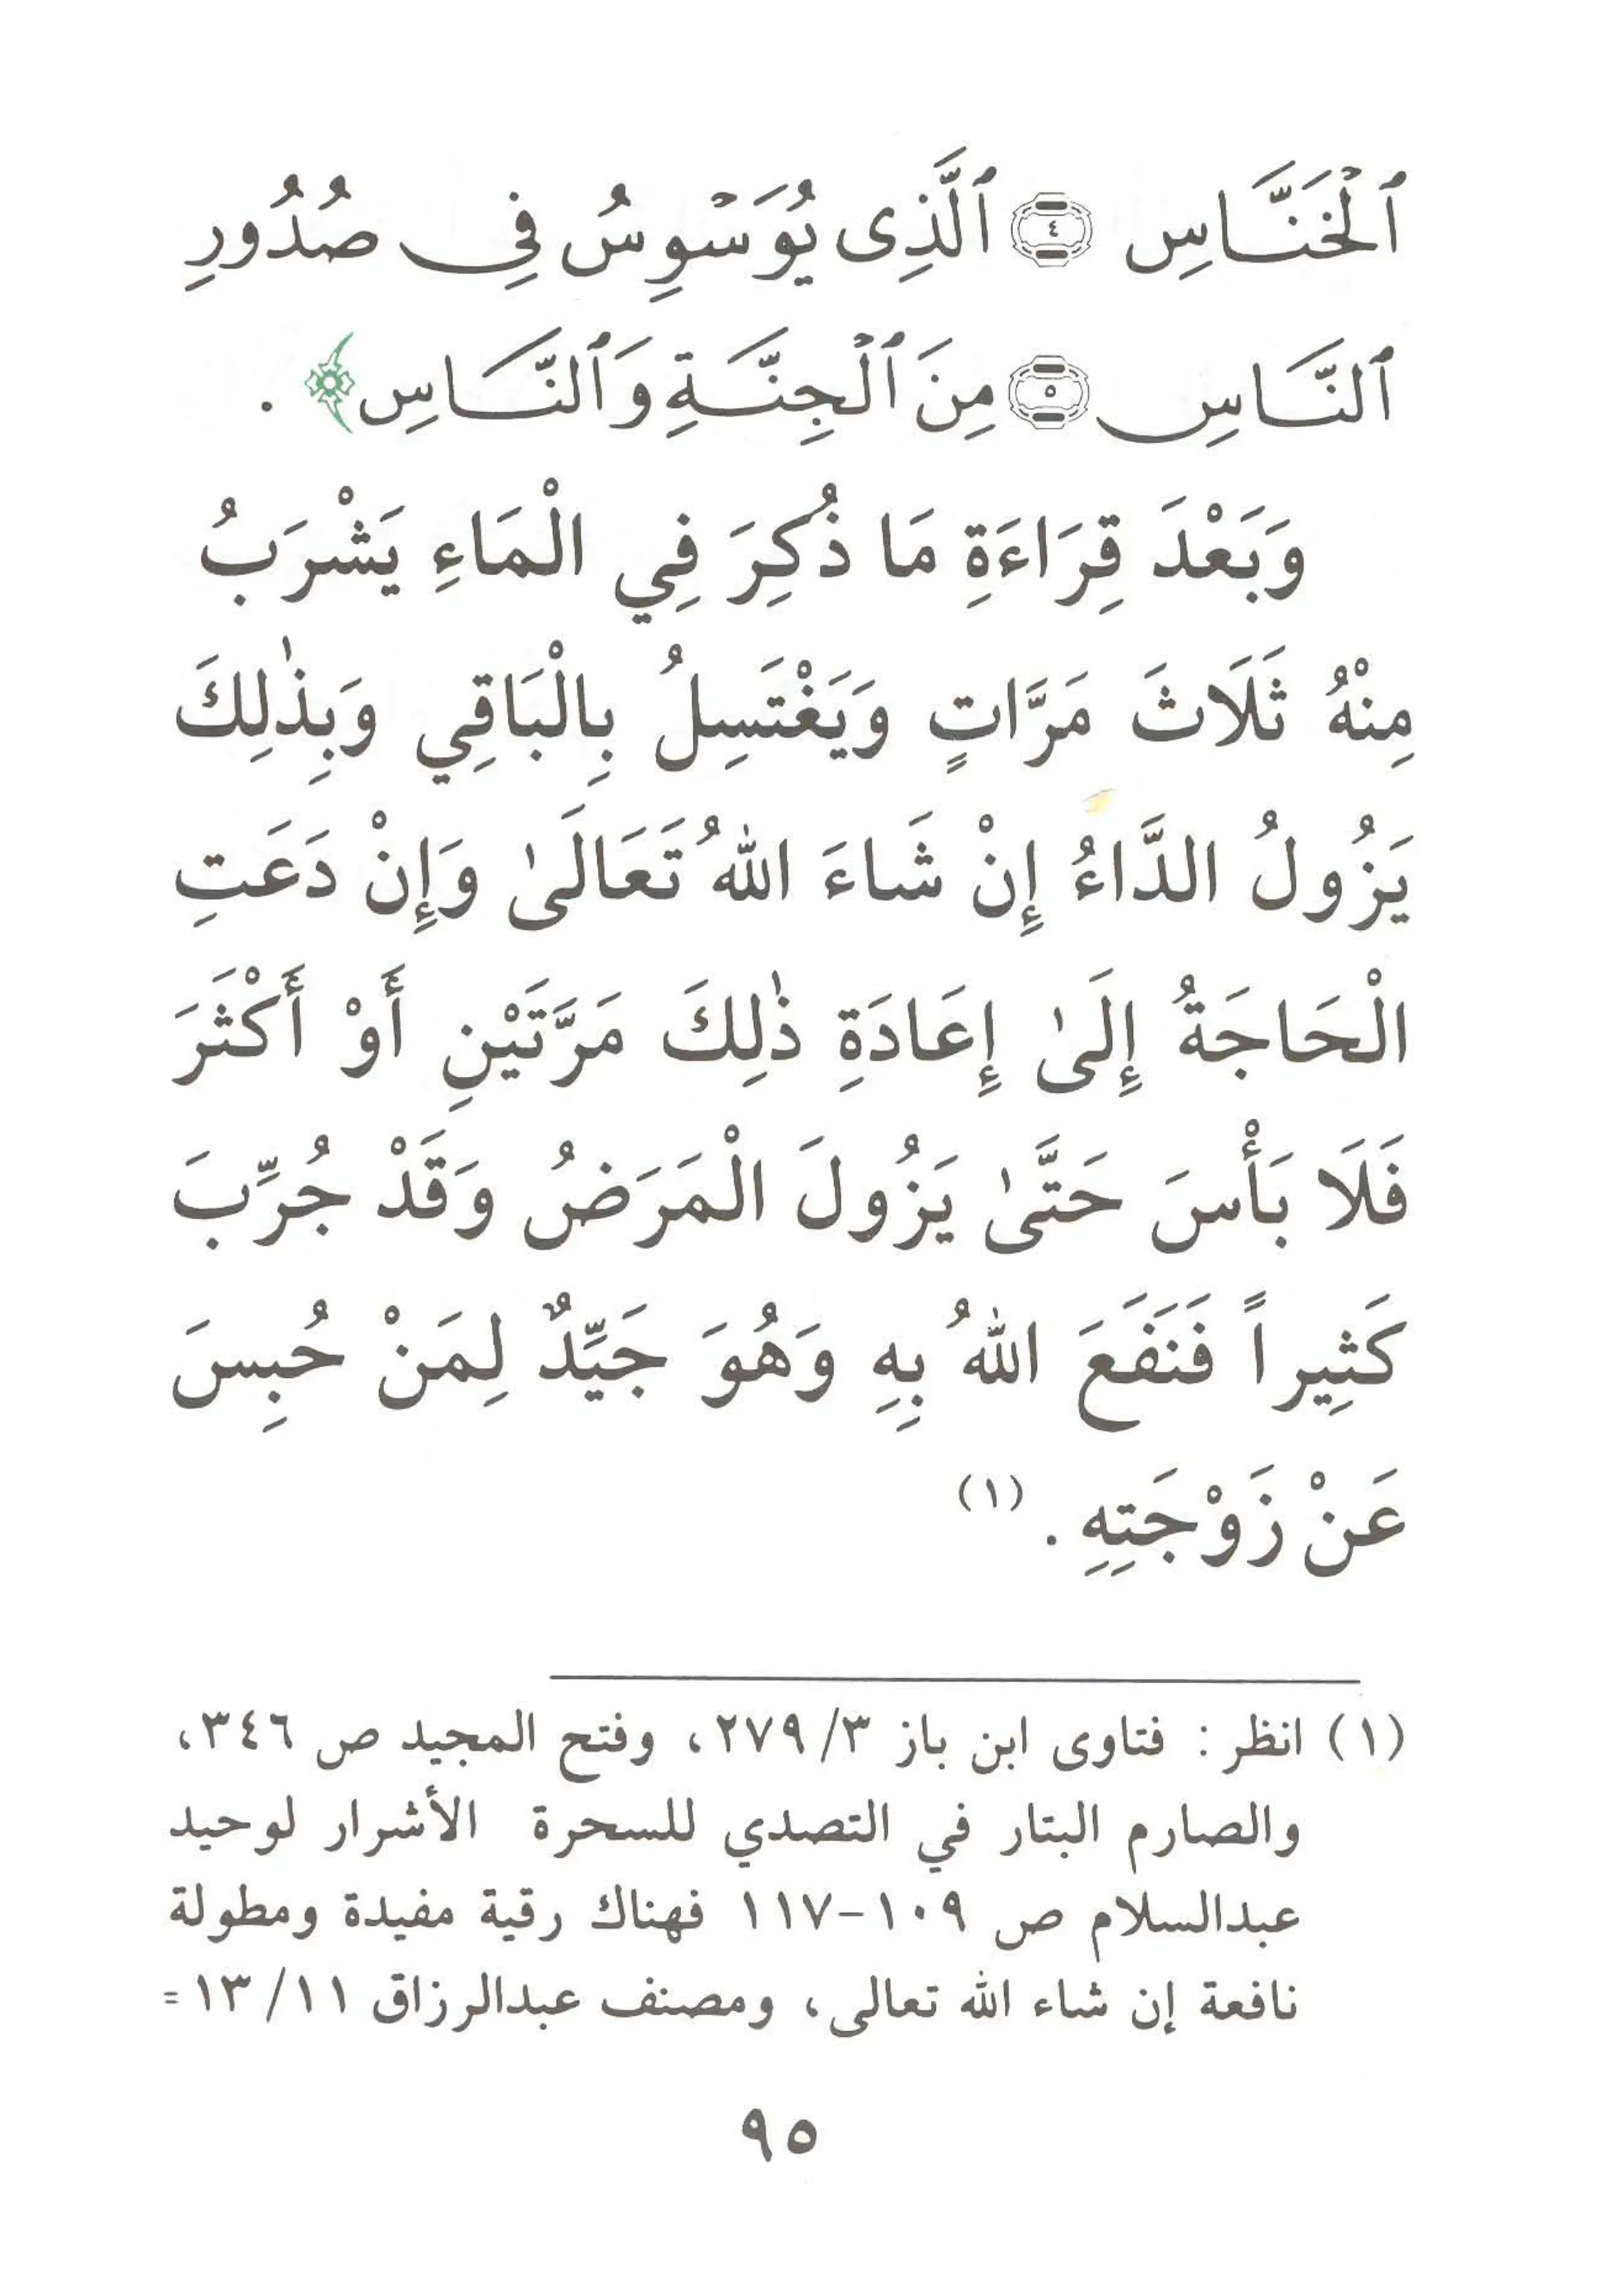 ٱلْخَنَّاسِ ۝٤ ٱلَّذِى يُوَسْوِسُ فِى صُدُورِ
ٱلنَّاسِ ۝٥ مِنَ ٱلْجِنَّةِ وَٱلنَّاسِ﴾ .
وَبَعْدَ قِرَاءَةِ مَا ذُكِرَ فِي الْمَاءِ يَشْرَبُ
مِنْهُ ثَلَاثَ مَرَّاتٍ وَيَغْتَسِلُ بِالْبَاقِي وَبِذٰلِكَ
يَزُولُ الدَّاءُ إِنْ شَاءَ اللهُ تَعَالَىٰ وَإِنْ دَعَتِ
الْحَاجَةُ إِلَىٰ إِعَادَةِ ذٰلِكَ مَرَّتَيْنِ أَوْ أَكْثَرَ
فَلَا بَأْسَ حَتَّىٰ يَزُولَ الْمَرَضُ وَقَدْ جُرِّبَ
كَثِيراً فَنَفَعَ اللهُ بِهِ وَهُوَ جَيِّدٌ لِمَنْ حُبِسَ
عَنْ زَوْجَتِهِ . (١)
(١) انظر : فتاوى ابن باز ٣/ ٢٧٩، وفتح المجيد ص ٣٤٦،
والصارم البتار في التصدي للسحرة الأشرار لوحيد
عبدالسلام ص ١٠٩-١١٧ فهناك رقية مفيدة ومطولة
نافعة إن شاء الله تعالى، ومصنف عبدالرزاق ١١/ ١٣ =
٩٥